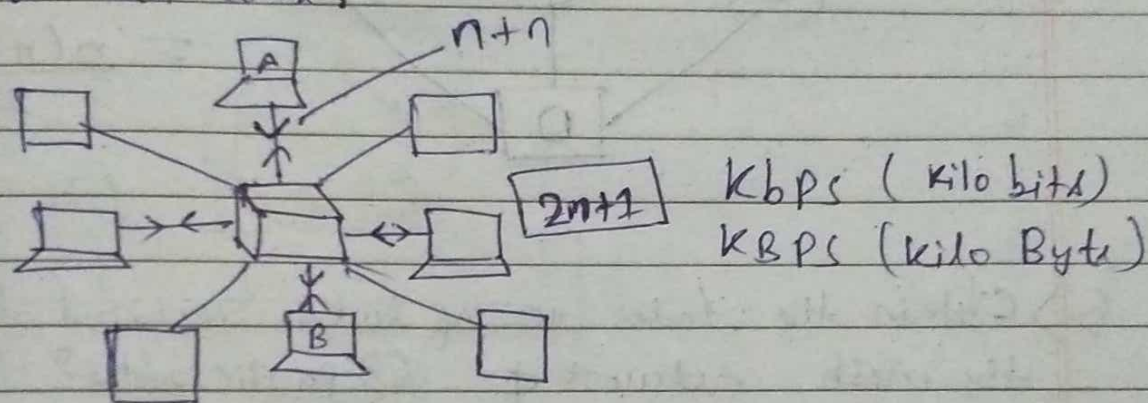 n+n
A
2n+1
Kbps (Kilo bits)
KBPS (Kilo Byte)
B